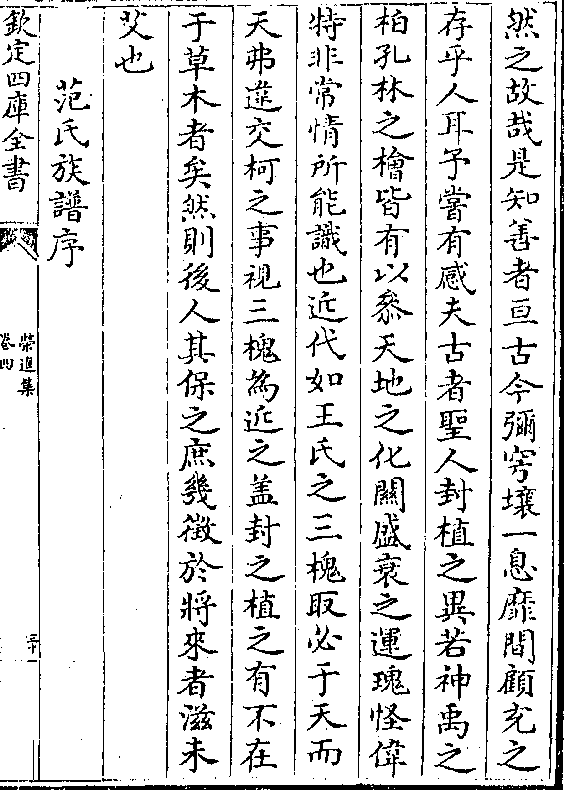 然之故哉是知善者亘古今彌穹壤一息靡間顧充之
存乎人耳予嘗有感夫古者聖人封植之異若神禹之
柏孔林之檜皆有以叅天地之化關盛衰之運瑰怪偉
特非常情所能識也近代如王氏之三槐取必于天而
天弗違交柯之事視三槐為近之盖封之植之有不在
于草木者矣然則後人其保之庶幾徵於將來者滋未
艾也
范氏族譜序
欽定四庫全書
榮進集
卷四